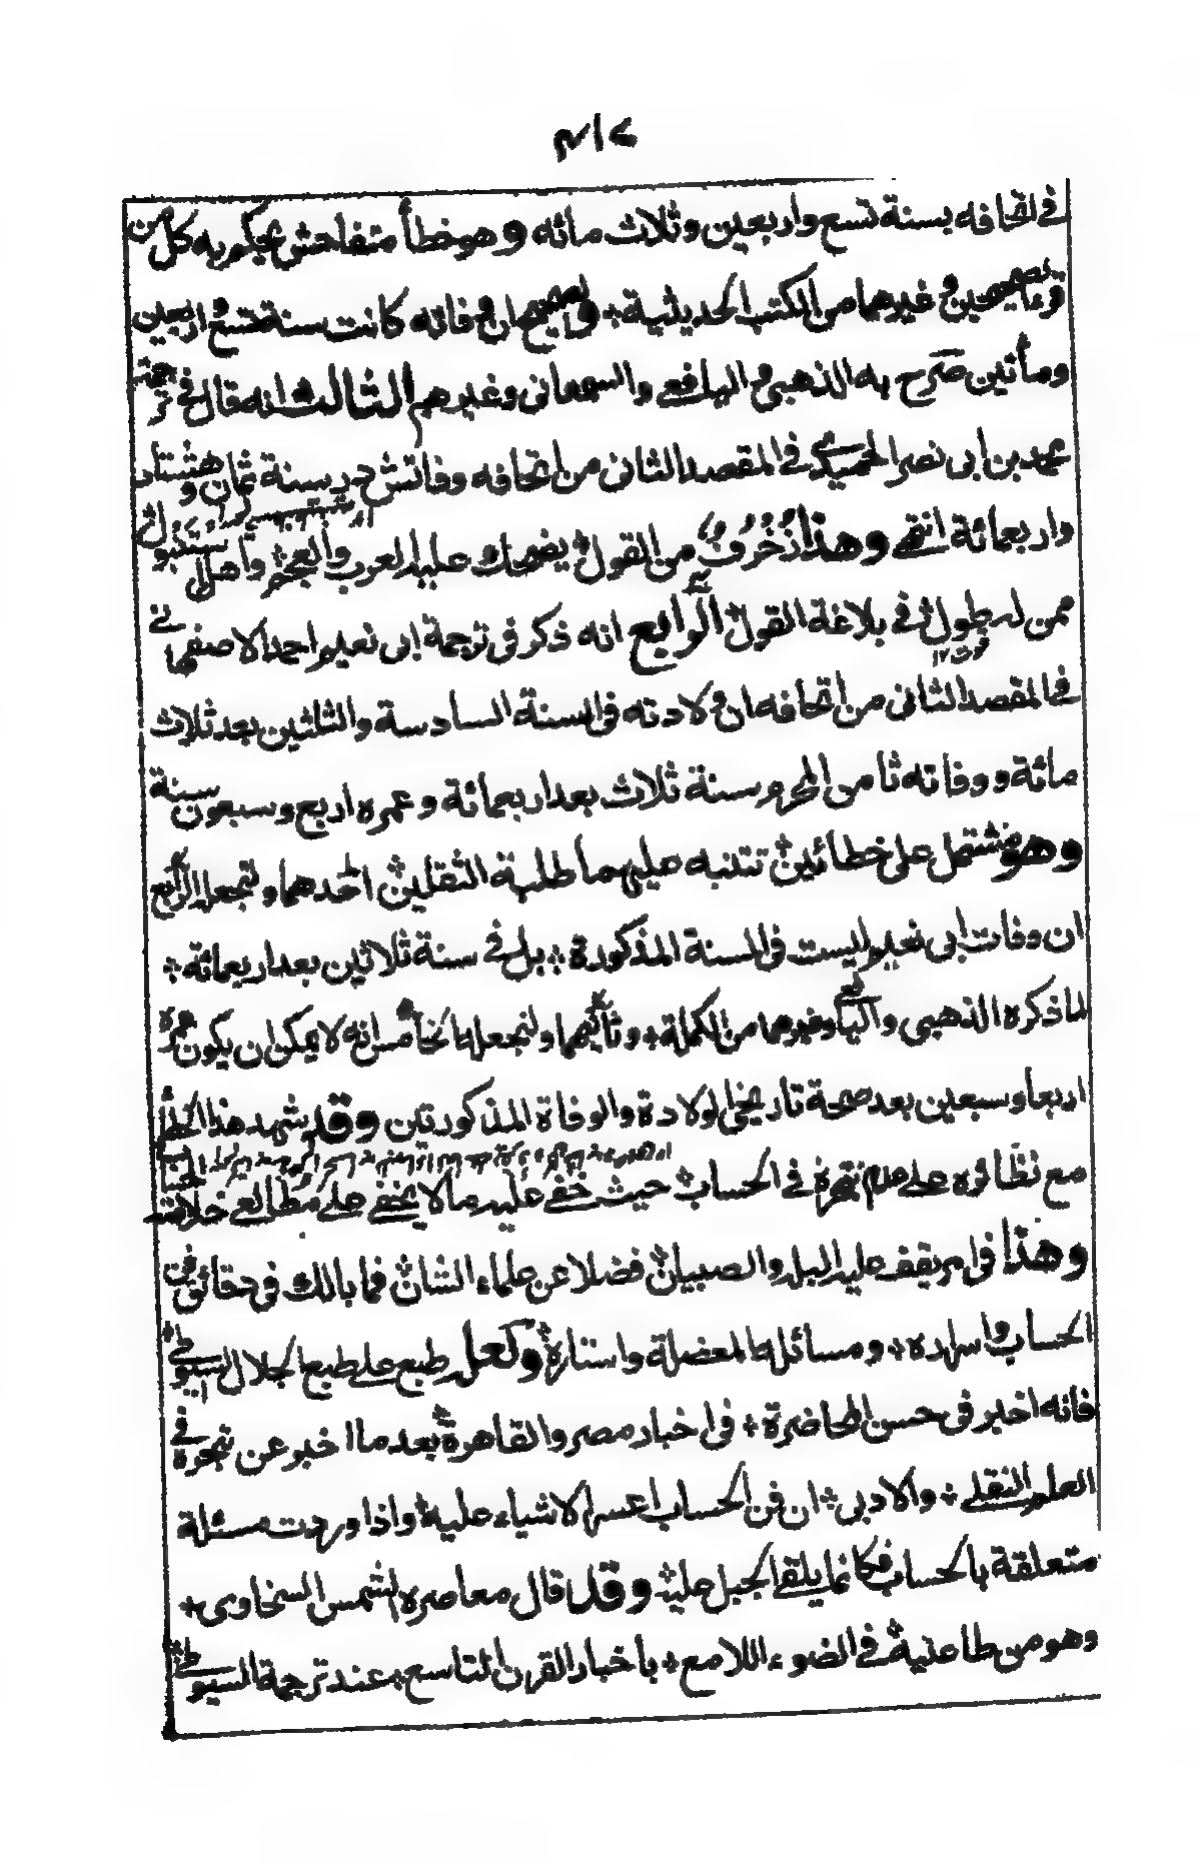 في اتحافه بسنة تسع واربعين وثلاث مائه وهو خطأ متفاحش يحكم به كل من
وغيرهما من الكتب الحديثية والصحيح ان وفاته كانت سنة تسع واربعين
ومأتين صرح به الذهبي و اليافعي والسمعاني وغيرهم الثالث انه قال في ترجمة
محمد بن ابي نصر الحميدي في المقصد الثاني من اتحافه وفاتش در سنة ثمان وهشتاد
واربعمائة انتهى وهذا زُخْرُفٌ من القول يضحك عليه العرب والعجم واهل
ممن له طول في بلاغة القول الرابع انه ذكر في ترجمة ابي نعيم احمد الاصفهاني
في المقصد الثاني من اتحافه ان ولادته في السنة السادسة والثلثين بعد ثلاث
مائة ووفاته ثامن المحرم سنة ثلاث بعد اربعمائة وعمره اربع وسبعون سنة
وهو مشتمل على خطائين تتنبه عليهما طلبة الثقلين احدهما ولنجعله الرابع
ان وفات ابي نعيم ليست في السنة المذكورة بل في سنة ثلاثين بعد اربعمائة
لما ذكره الذهبي واليافعي وغيرهما من الكملة وثانيهما ولنجعله الخامس انه لا يمكن ان يكون عمره
اربعا وسبعين بعد صحة تاريخي الولادة والوفاة المذكورتين وقد شهد هذا الخطأ
مع نظائره على عدم تبحره في الحساب حيث خفي عليه ما لا يخفى على مُطالعي خلاصة الحساب
وهذا في امر يقف عليه البله والصبيان فضلا عن علماء الشان فما بالك في دقائق فن
الحساب واسراره ومسائله المعضلة واستاره ولعل طبع على طبع الجلال السيوطي
فانه اخبر في حسن المحاضرة في اخبار مصر والقاهرة بعد ما اخبر عن تبحره في
العلم النقلي والادبي ان فن الحساب اعسر الاشياء عليه واذا وردت مسئلة
متعلقة بالحساب فكانما يلقى الجبل عليه وقد قال معاصره الشمس السخاوي
وهو من طاعنيه في الضوء اللامع باخبار القرن التاسع عند ترجمة السيوطي